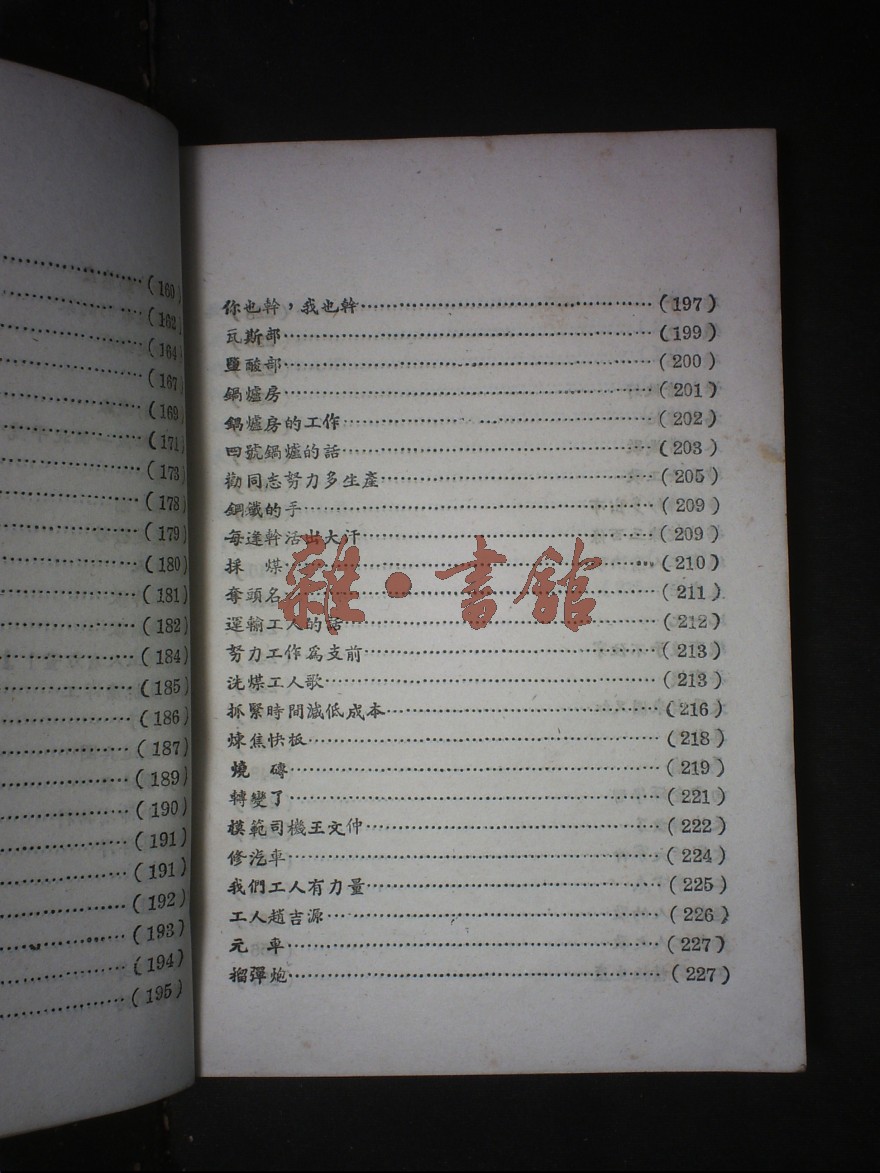 (160)
(162)
(164)
(167)
(169)
(171)
(173)
(178)
(179)
(180)
(181)
(182)
(184)
(185)
(186)
(187)
(189)
(190)
(191)
(191)
(192)
(193)
(194)
(195)
你也幹，我也幹……(197)
瓦斯部……(199)
鹽酸部……(200)
鍋爐房……(201)
鍋爐房的工作……(202)
四號鍋爐的話……(203)
勸同志努力多生產……(205)
鋼鐵的手……(209)
每逢幹活出大汗……(209)
採 煤……(210)
奪頭名……(211)
運輸工人的話……(212)
努力工作爲支前……(213)
洗煤工人歌……(213)
抓緊時間減低成本……(216)
煉焦快板……(218)
燒 磚……(219)
轉變了……(221)
模範司機王文仲……(222)
修汽車……(224)
我們工人有力量……(225)
工人趙吉源……(226)
元 車……(227)
榴彈炮……(227)
雜·書館